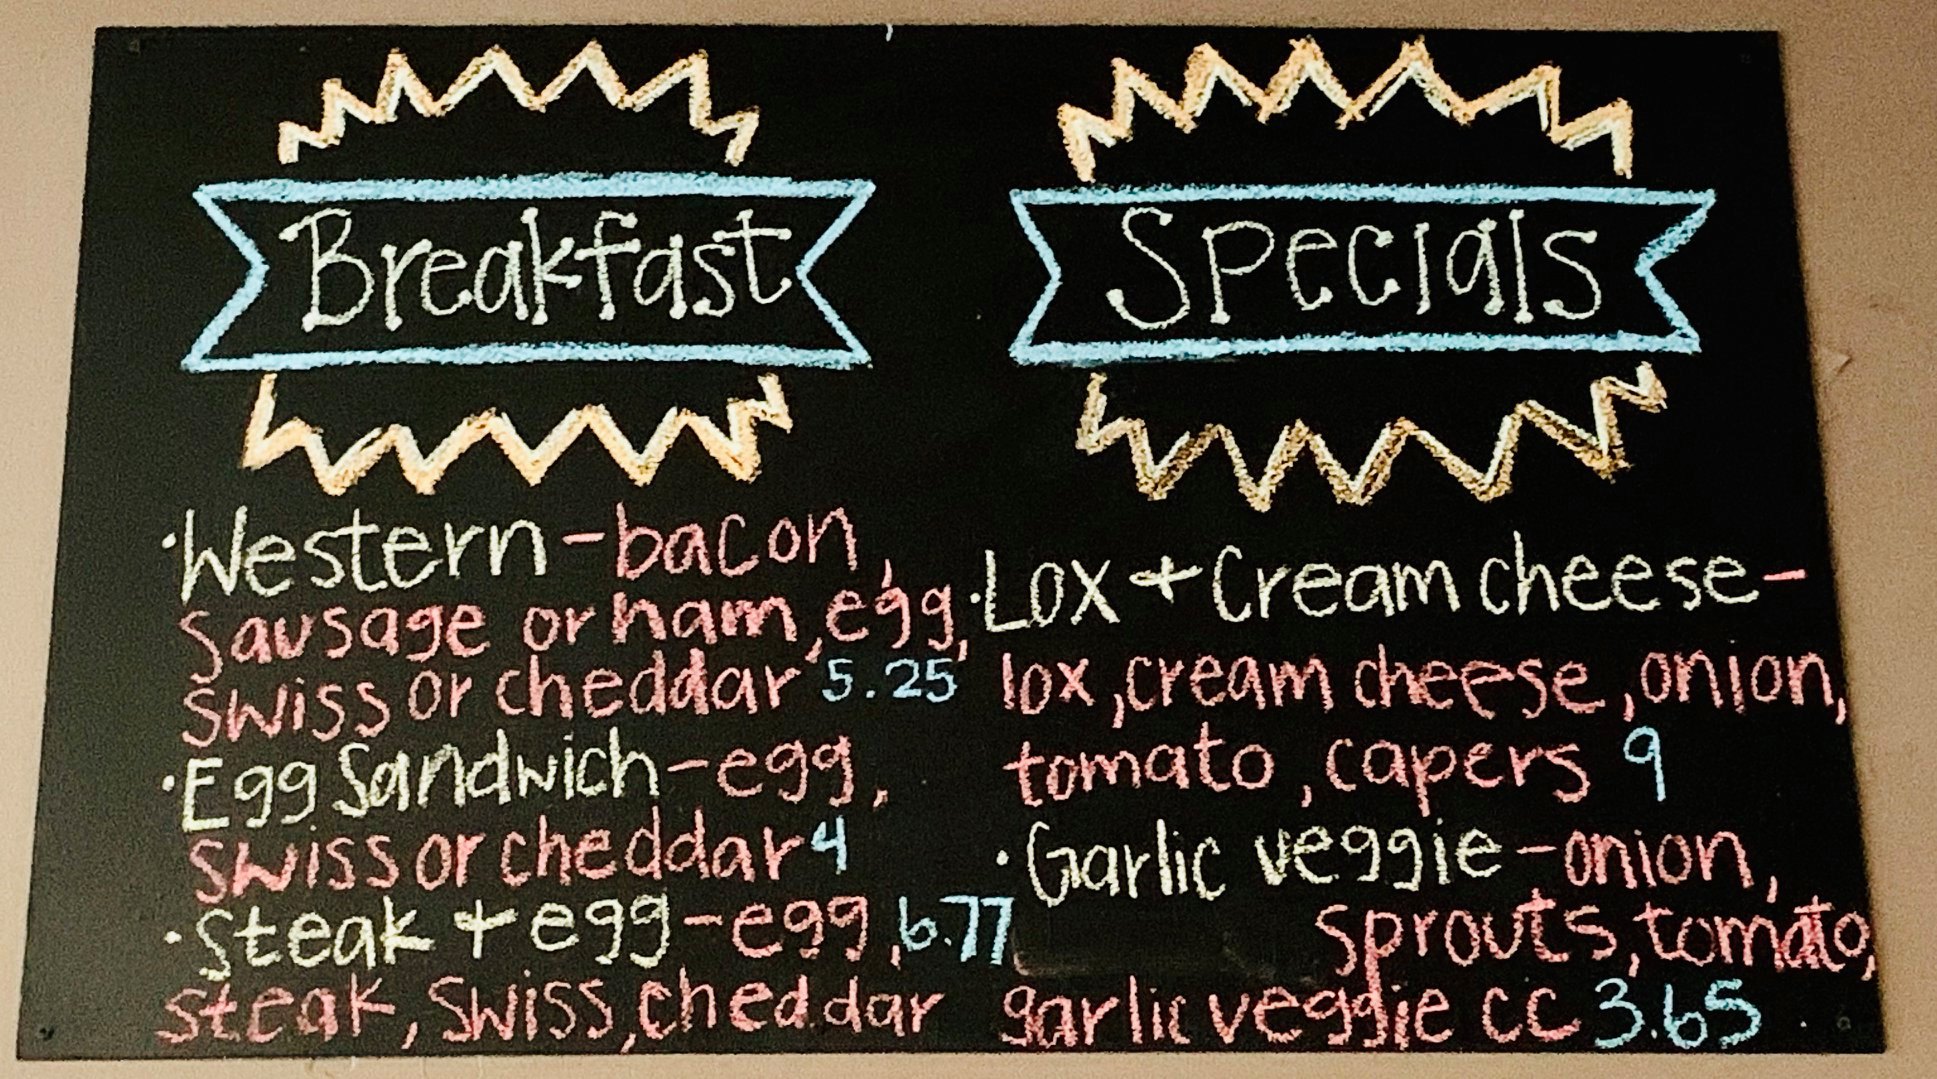 Breakfast
• Western - bacon,
sausage or ham, egg,
swiss or cheddar 5.25
• Egg Sandwich - egg,
swiss or cheddar 4
• Steak + egg - egg, 6.77
steak, swiss, cheddar
Specials
• Lox + Cream cheese -
lox, cream cheese, onion,
tomato, capers 9
• Garlic veggie - onion,
sprouts, tomato,
garlic veggie cc 3.65